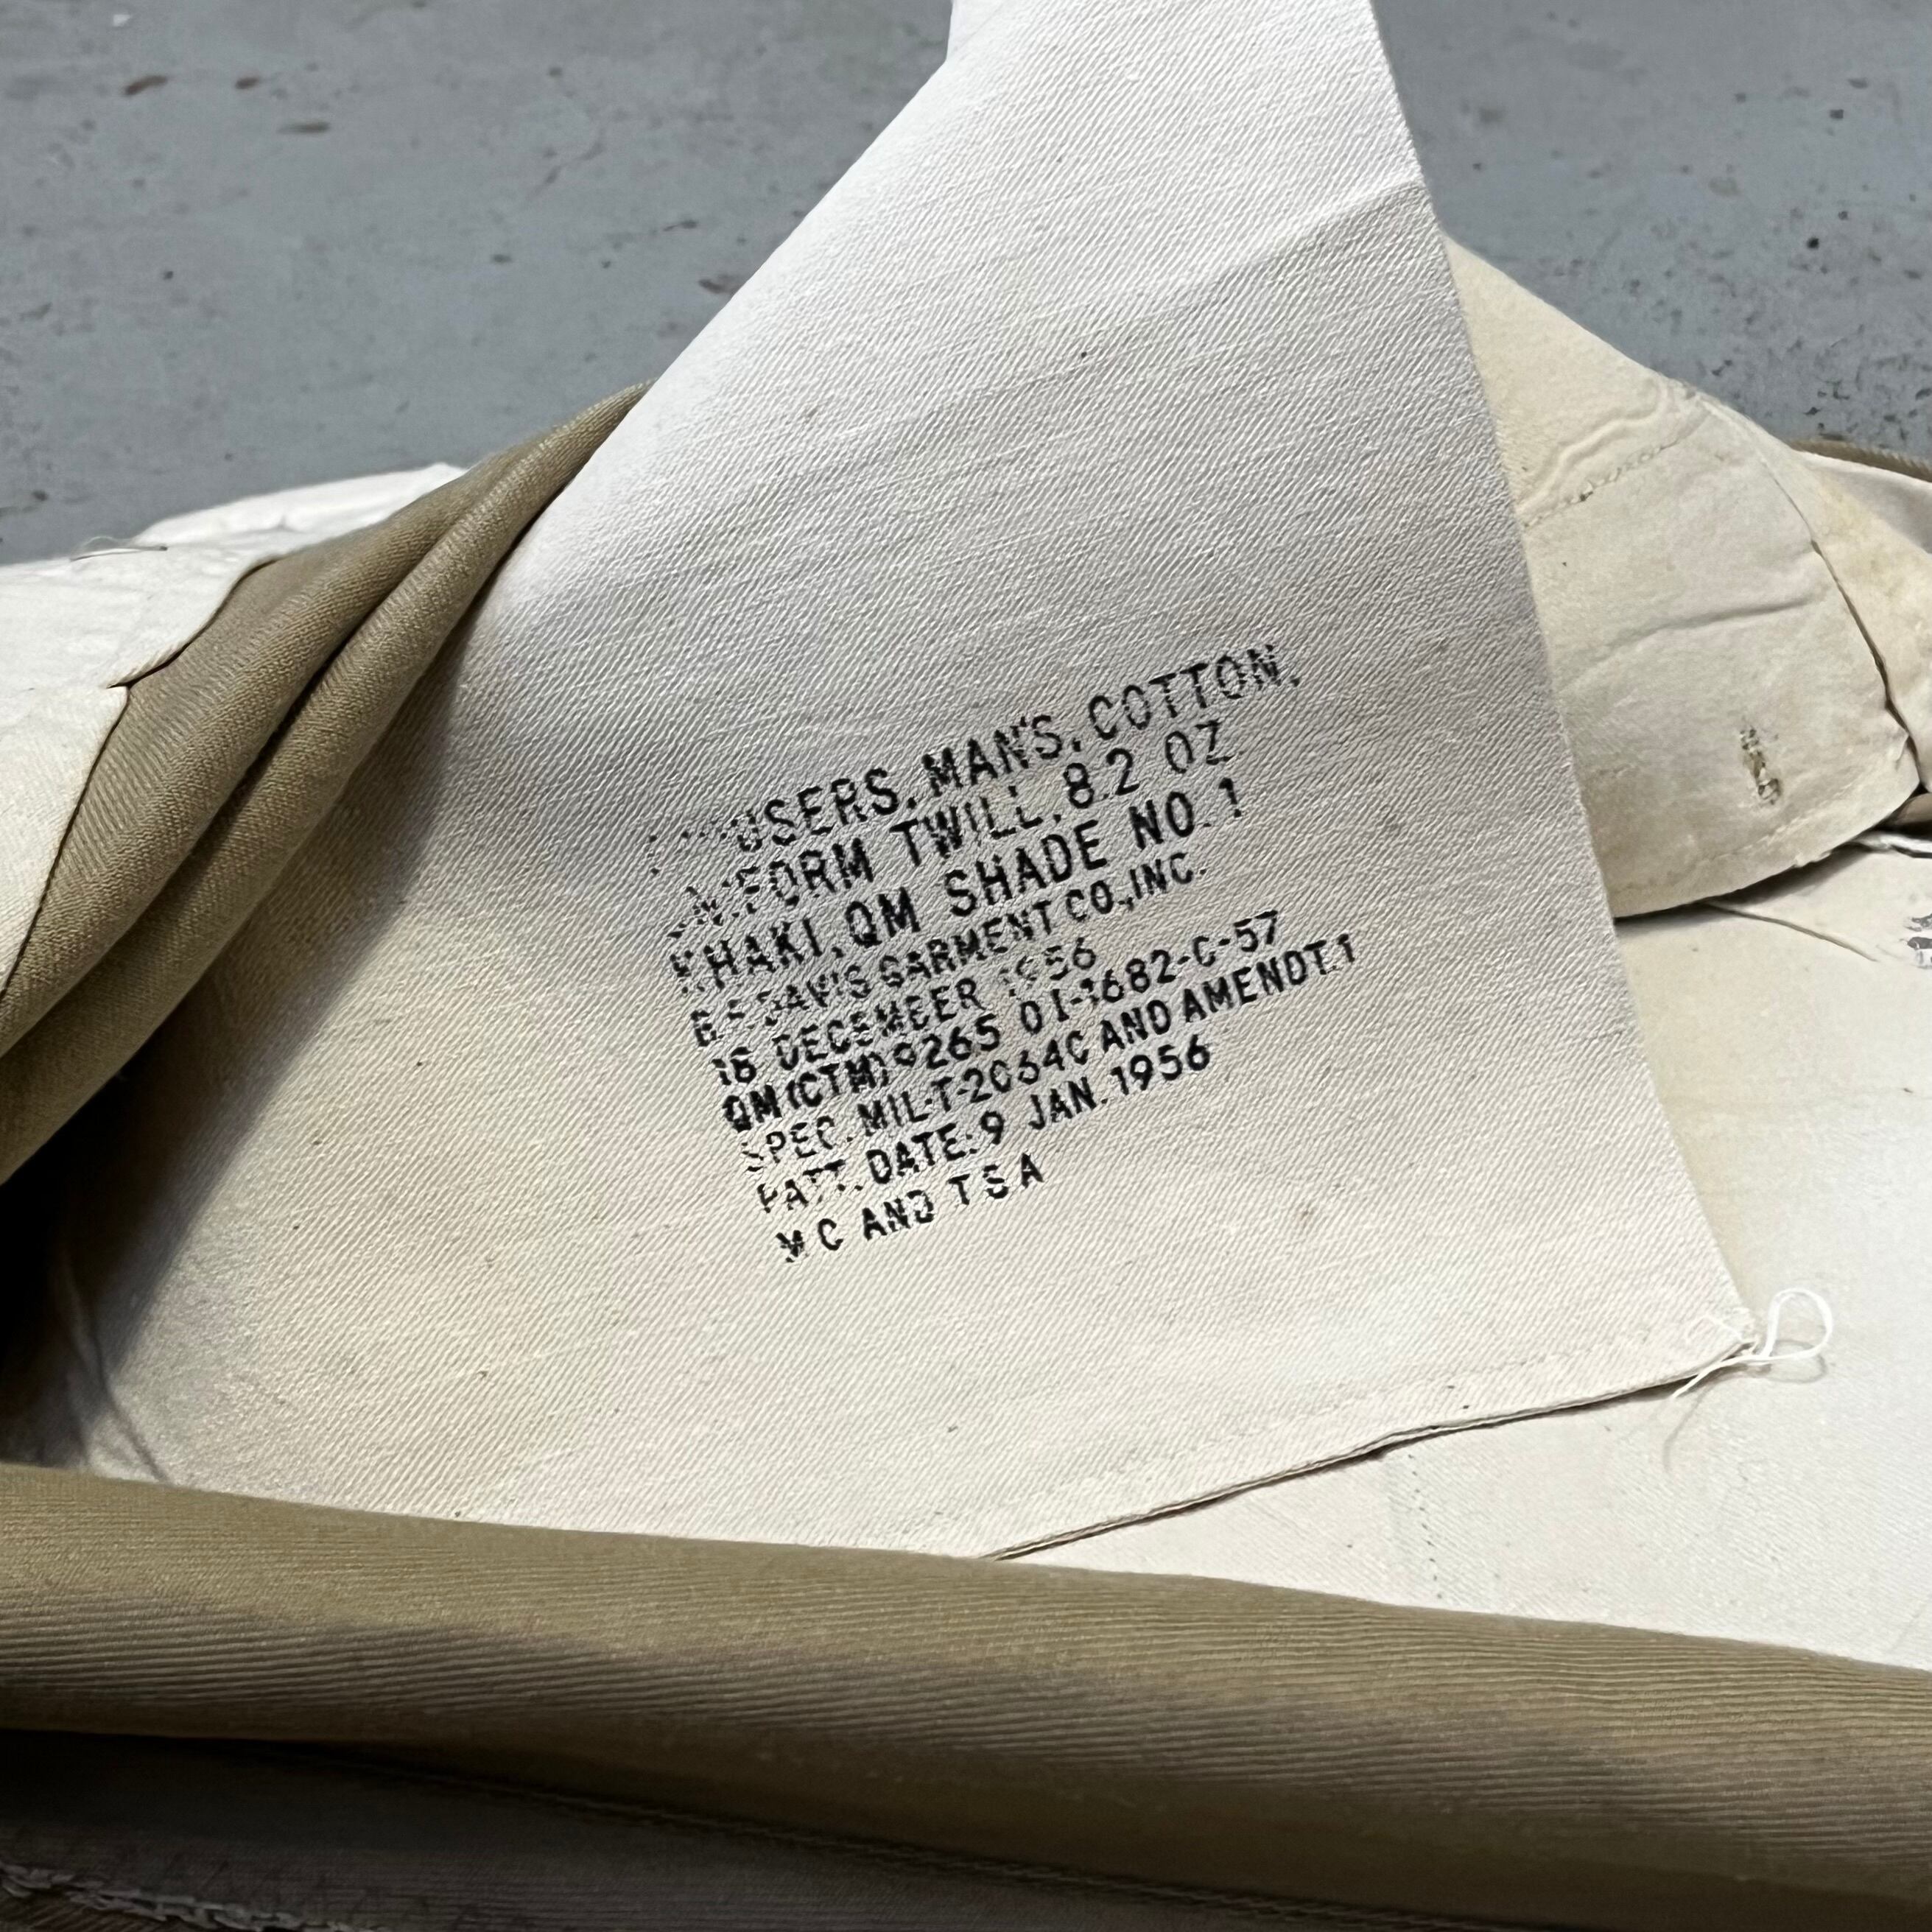 TROUSERS, MAN'S, COTTON,
UNIFORM TWILL, 8.2 OZ.
KHAKI, QM SHADE NO. 1
DAVIS GARMENT CO., INC.
DECEMBER 1956
QM (CTM) 9265 OI-1682-C-57
SPEC. MIL-T-2064C AND AMENDT. 1
PATT. DATE: 9 JAN. 1956
MC AND TSA